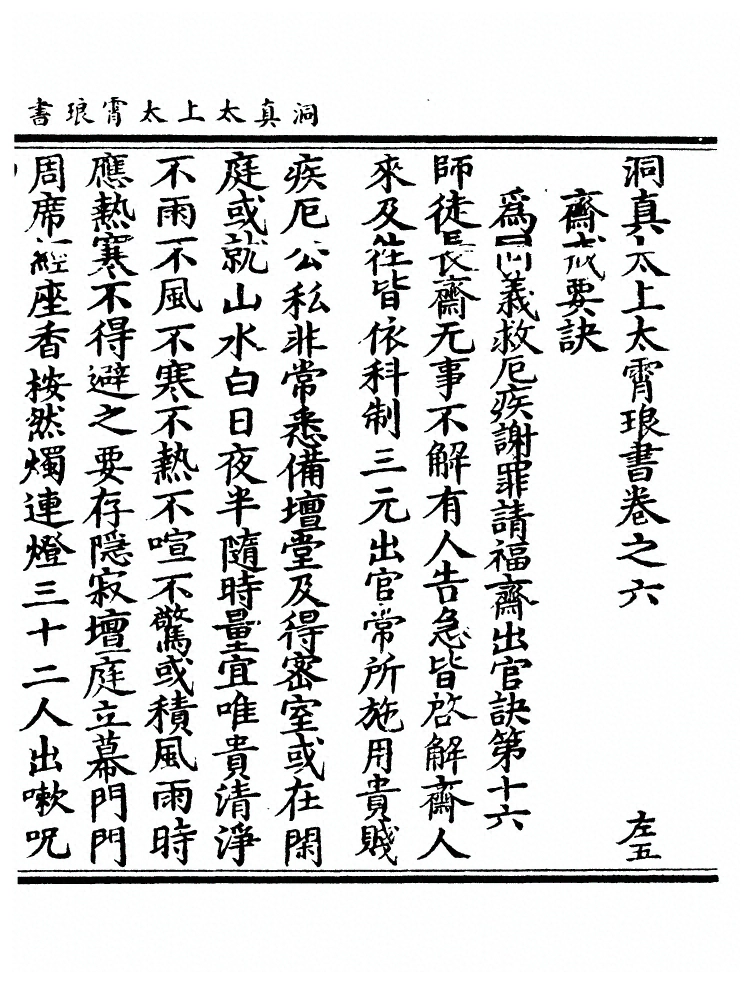 洞真太上太霄琅書
洞真太上太霄琅書卷之六
左五
齋戒要訣
爲同義救厄疾謝罪請福齋出官訣第十六
師徒長齋无事不解有人告急皆啓解齋人
來及往皆依科制三元出官常所施用貴賤
疾厄公私非常悉備壇堂及得密室或在閑
庭或就山水白日夜半隨時量宜唯貴清淨
不雨不風不寒不熱不喧不驚或積風雨時
應熱寒不得避之要存隱寂壇庭立幕門門
周席經座香桉然燭連燈三十二人出嗽呪